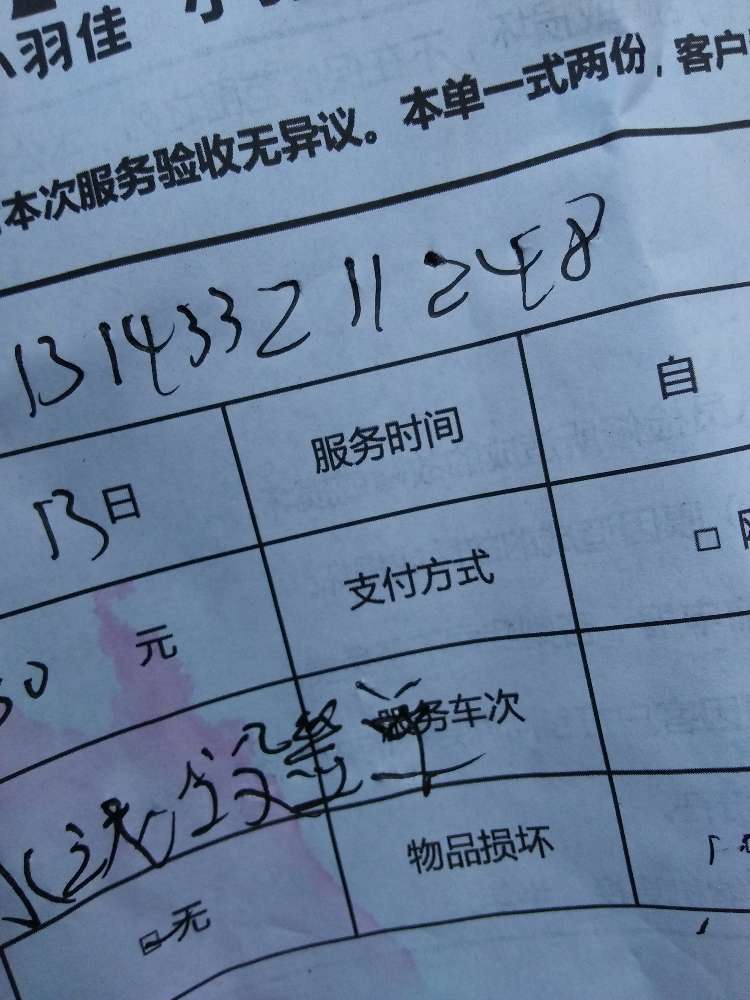 羽佳
本次服务验收无异议。本单一式两份，客户
13143321124 8
13日 服务时间 自
元 支付方式 □
服务车次
□无 物品损坏